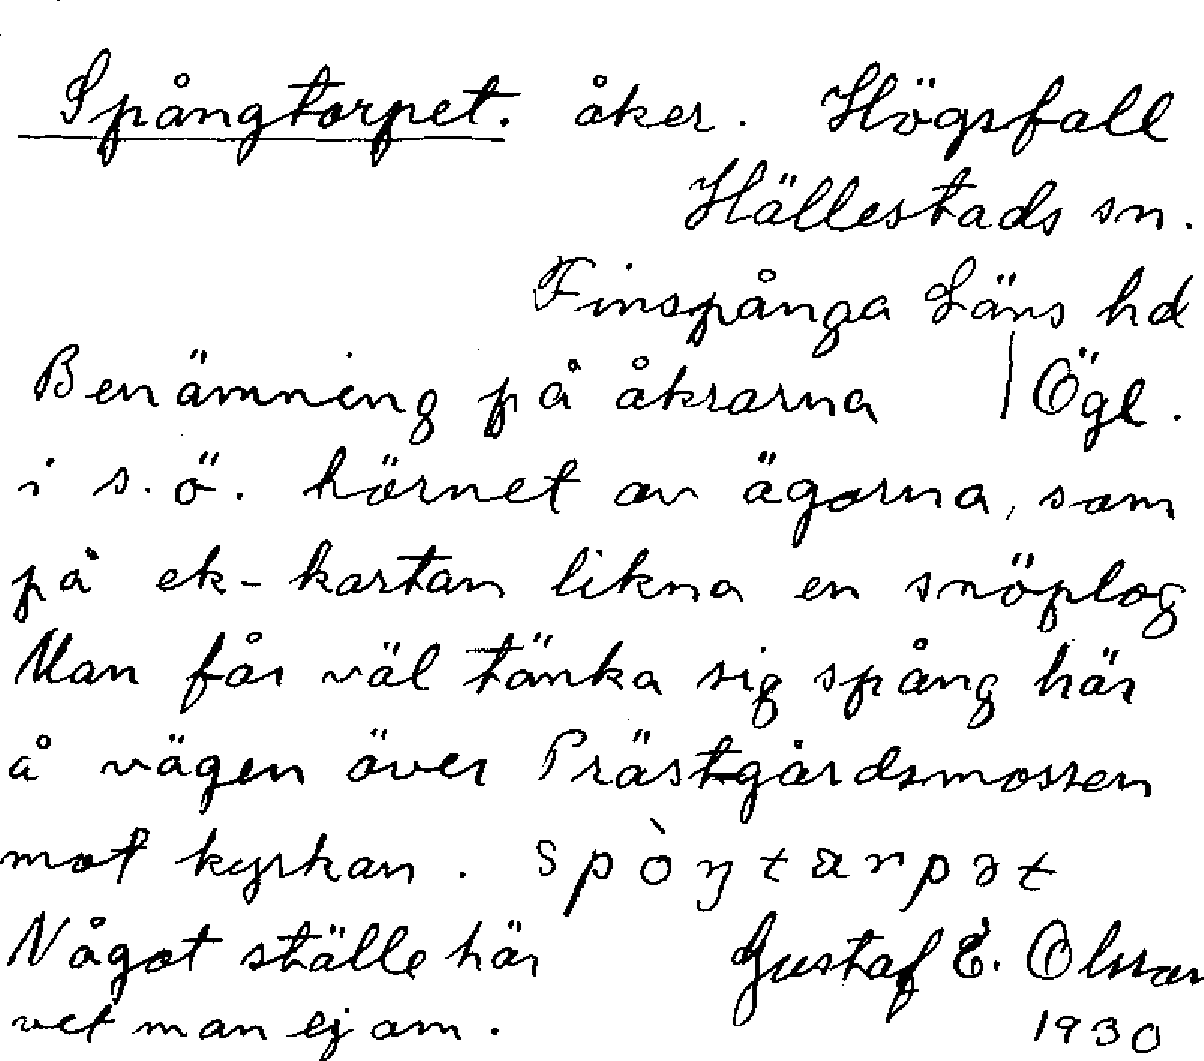 Spångtorpet. åker. Högsfall
Hällestads sn.
Finspånga Läns hd
Benämning på åkrarna | Ögl.
i s.ö. hörnet av ägorna, som
på ek-kartan likna en snöplog
Man får väl tänka sig spång här
å vägen över Prästgårdsmossen
mot kyrkan.
Något ställe här Gustaf E. Olsson
vet man ej om. 1930